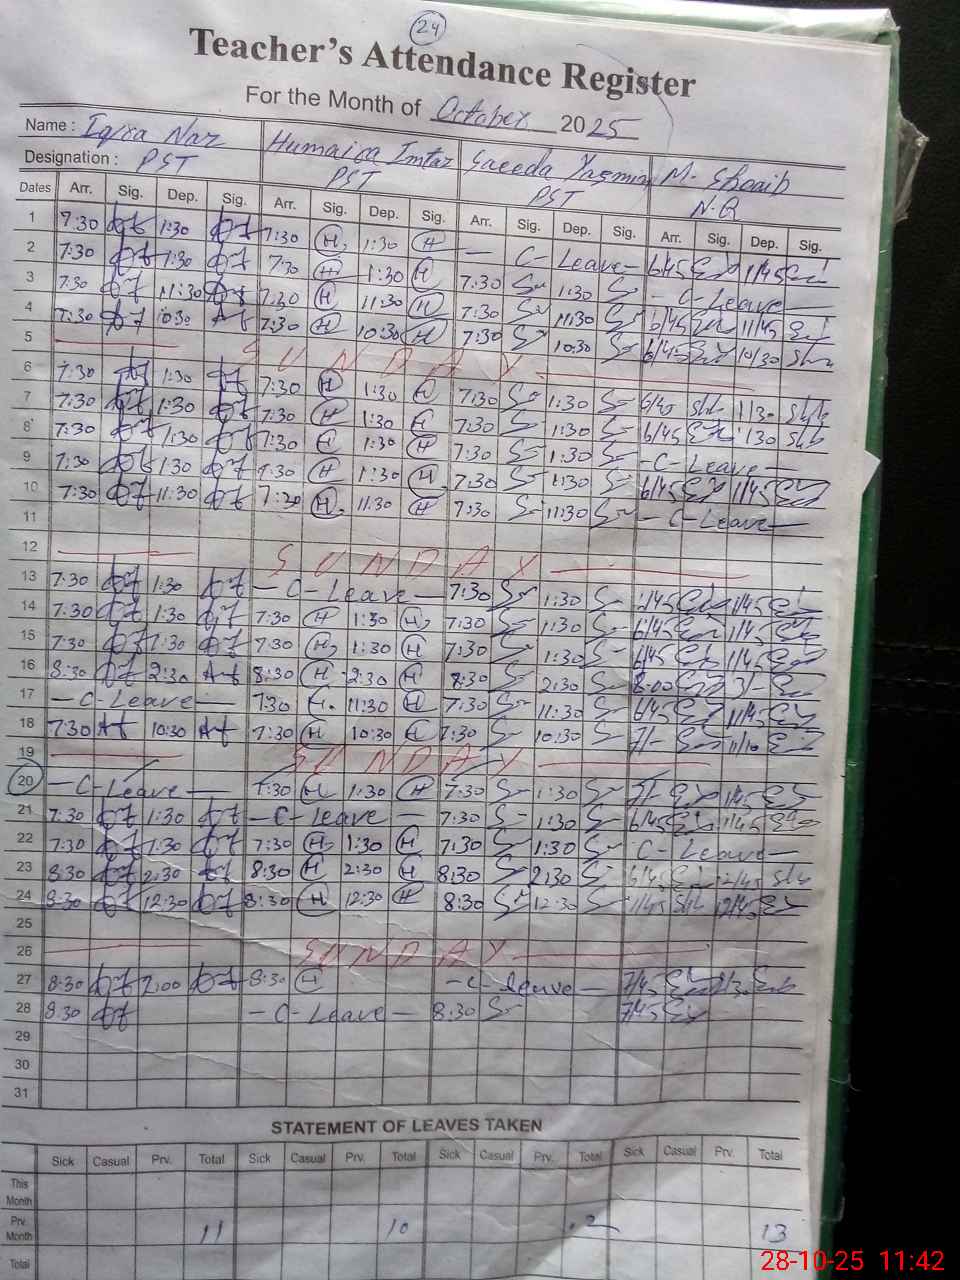 24
Teacher's Attendance Register
For the Month of October 2025
Name : Iqra Naz Humaira Imtaz Saeeda Yasmin M. Shoaib
Designation : PST PST PST N.Q
Dates Arr. Sig. Dep. Sig. Arr. Sig. Dep. Sig. Arr. Sig. Dep. Sig. Arr. Sig. Dep. Sig.
1 7:30 1:30 7:30 H 1:30 H — C- Leave — 6/45 1/45
2 7:30 1:30 7:30 H 1:30 H 7:30 1:30 — C- Leave —
3 7:30 11:30 7:30 H 11:30 H 7:30 11:30 6/45 11/45
4 7:30 10:30 7:30 H 10:30 H 7:30 10:30 6/45 10/30
5 SUNDAY
6 7:30 1:30 7:30 H 1:30 H 7:30 1:30 6/45 1/30
7 7:30 1:30 7:30 H 1:30 H 7:30 1:30 6/45 1/30
8 7:30 1:30 7:30 H 1:30 H 7:30 1:30 — C- Leave —
9 7:30 1:30 7:30 H 1:30 H 7:30 1:30 6/45 1/45
10 7:30 11:30 7:30 H 11:30 H 7:30 11:30 — C- Leave —
11
12 SUNDAY
13 7:30 1:30 — C- Leave — 7:30 1:30 6/45 1/45
14 7:30 1:30 7:30 H 1:30 H 7:30 1:30 6/45 1/45
15 7:30 1:30 7:30 H 1:30 H 7:30 1:30 6/45 1/45
16 8:30 2:30 8:30 H 2:30 H 8:30 2:30 8:00 3/-
17 — C- Leave — 7:30 H 11:30 H 7:30 11:30 6/45 11/45
18 7:30 10:30 7:30 H 10:30 H 7:30 10:30 7/- 11/10
19 SUNDAY
20 — C- Leave — 7:30 H 1:30 H 7:30 1:30 7/- 1/45
21 7:30 1:30 — C- Leave — 7:30 1:30 6/45 1/45
22 7:30 1:30 7:30 H 1:30 H 7:30 1:30 C- Leave —
23 8:30 2:30 8:30 H 2:30 H 8:30 2:30 6/45 2/45
24 8:30 12:30 8:30 H 12:30 H 8:30 12:30 7/45 12/45
25
26 SUNDAY
27 8:30 2:00 8:30 H — C- leave — 7/45 2/30
28 8:30 — C- Leave — 8:30 7/45
29
30
31
STATEMENT OF LEAVES TAKEN
Sick Casual Prv. Total Sick Casual Prv. Total Sick Casual Prv. Total Sick Casual Prv. Total
This Month
Prv. Month 11 10 2 13
Total
28-10-25 11:42